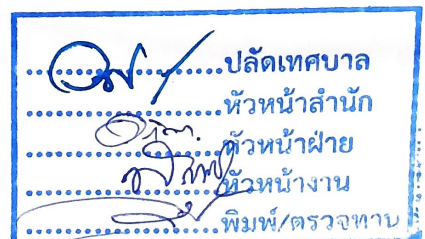 ปลัดเทศบาล
หัวหน้าสำนัก
หัวหน้าฝ่าย
หัวหน้างาน
พิมพ์/ตรวจทาน